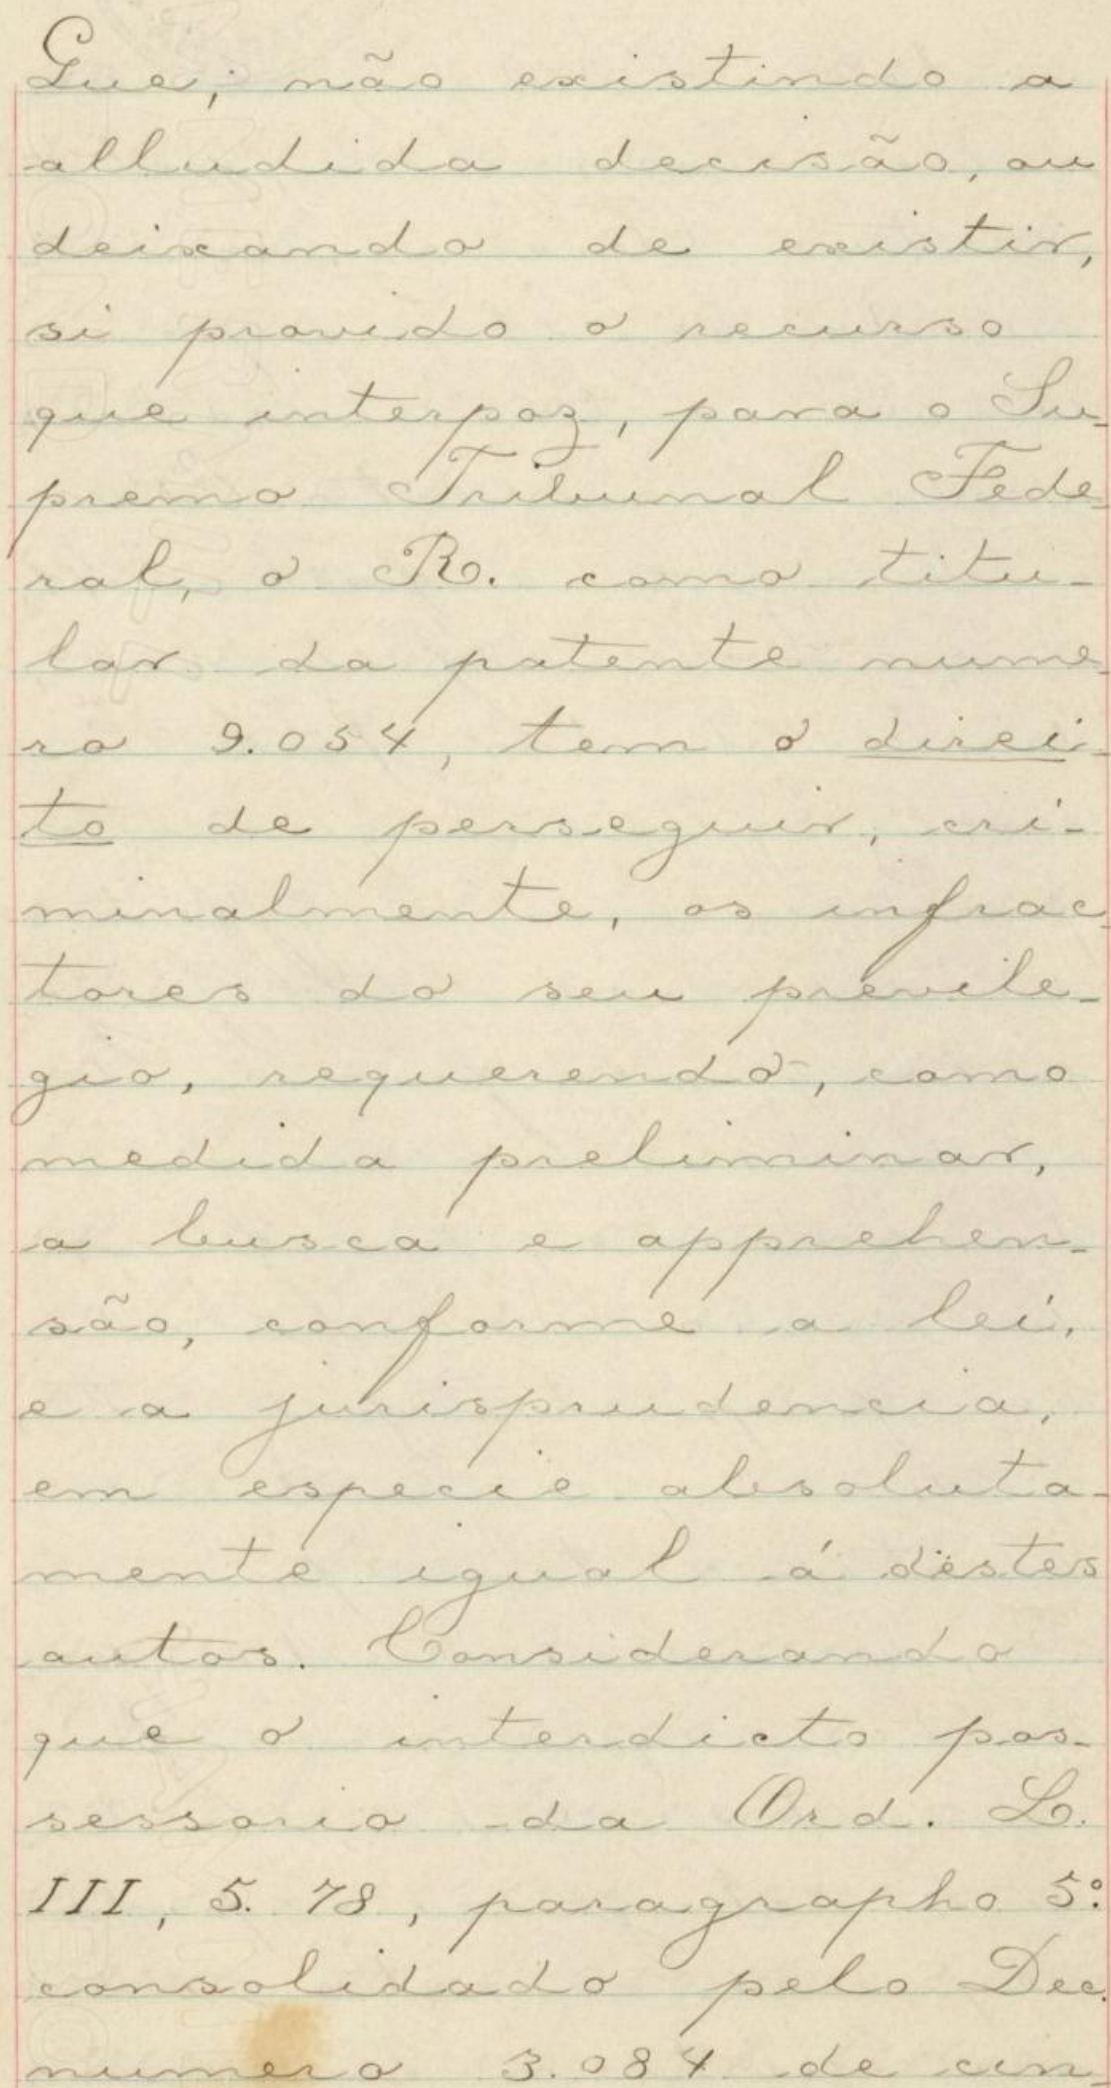 Que, não existindo a
alludida decisão, ou
deixando de existir,
si provido o recurso
que interpoz, para o Su-
premo Tribunal Fede-
ral, o R. como titu-
lar da patente nume-
ro 9.054, tem o direi-
to de perseguir, cri-
minalmente, os infrac-
tores do seu previle-
gio, requerendo, como
medida preliminar,
a busca e apprehen-
são, conforme a lei,
e a jurisprudencia,
em especie absoluta-
mente igual á destes
autos. Considerando
que o interdicto pos-
sessorio da Ord. L.
III, 5. 78, paragrapho 5º
consolidado pelo Dec.
numero 3.084 de cin-